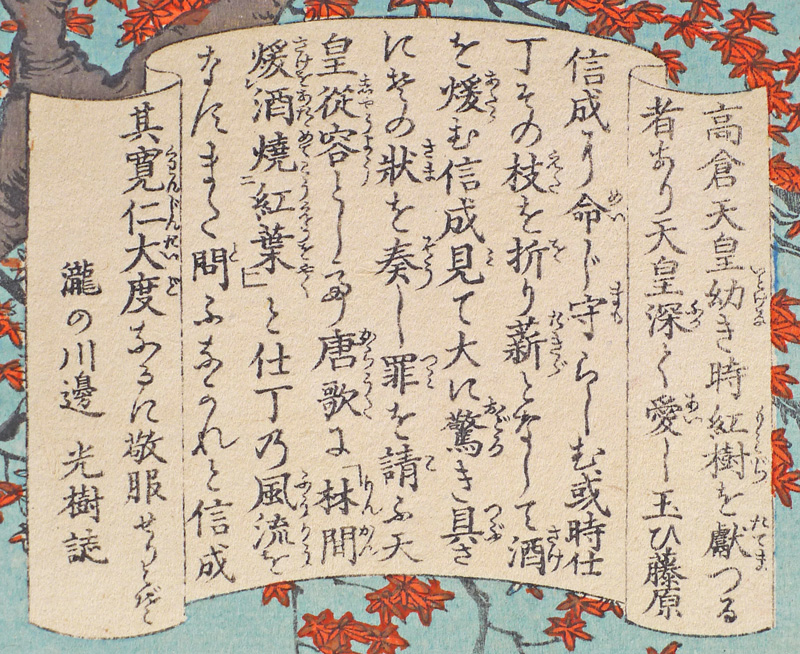 高倉天皇幼き時紅樹を献つる
者あり天皇深く愛し玉ひ藤原
信成に命じ守らしむ或時仕
丁その枝を折り薪となして酒
を煖む信成見て大に驚き具さ
にその状を奏し罪を請ふ天
皇從容として唐歌に「林間
煖酒燒紅葉」と仕丁乃風流を
なすまた問ふなかれと信成
其寛仁大度なるに敬服せりとぞ
瀧の川邊 光樹誌